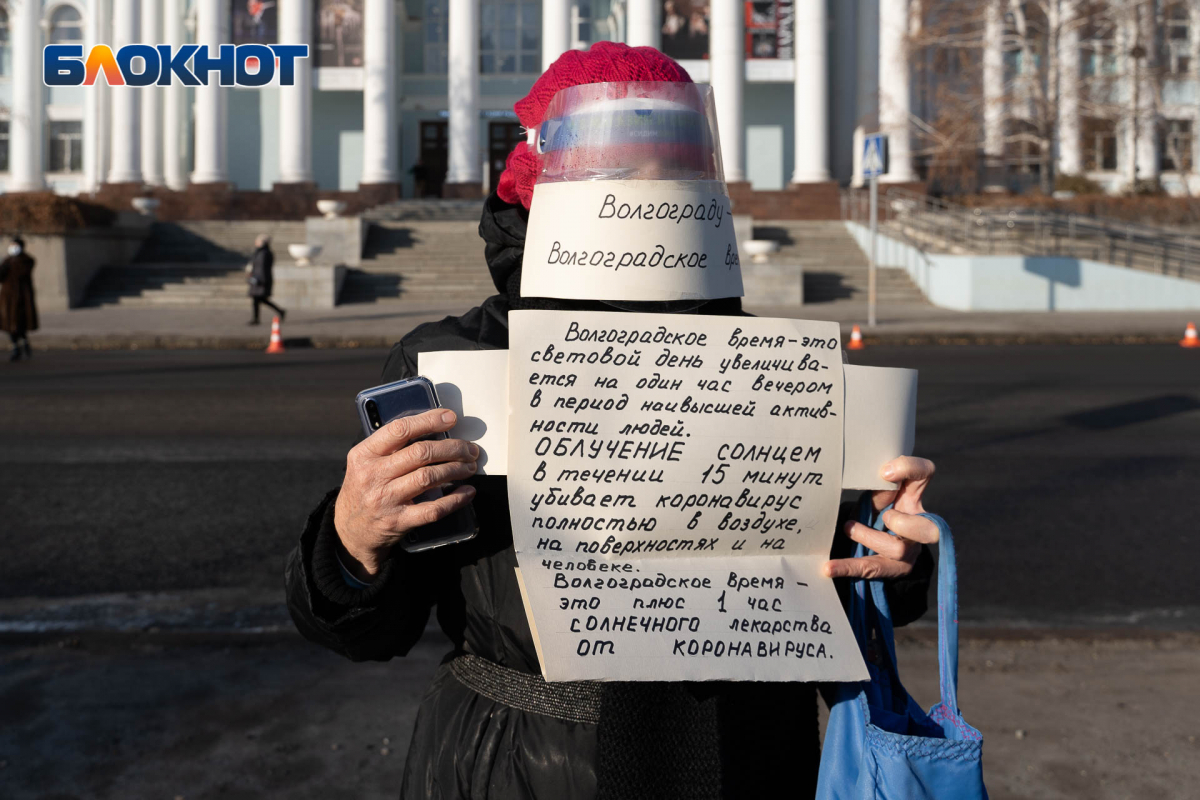 БЛОКНОТ
Волгограду -
Волгоградское
Волгоградское время-это
световой день увеличива-
ется на один час вечером
в период наивысшей актив-
ности людей.
ОБЛУЧЕНИЕ СОЛНЦЕМ
в течении 15 минут
убивает коронавирус
полностью в воздухе,
на поверхностях и на
человеке.
Волгоградское время -
это плюс 1 час
СОЛНЕЧНОГО лекарства
от КОРОНАВИРУСА.